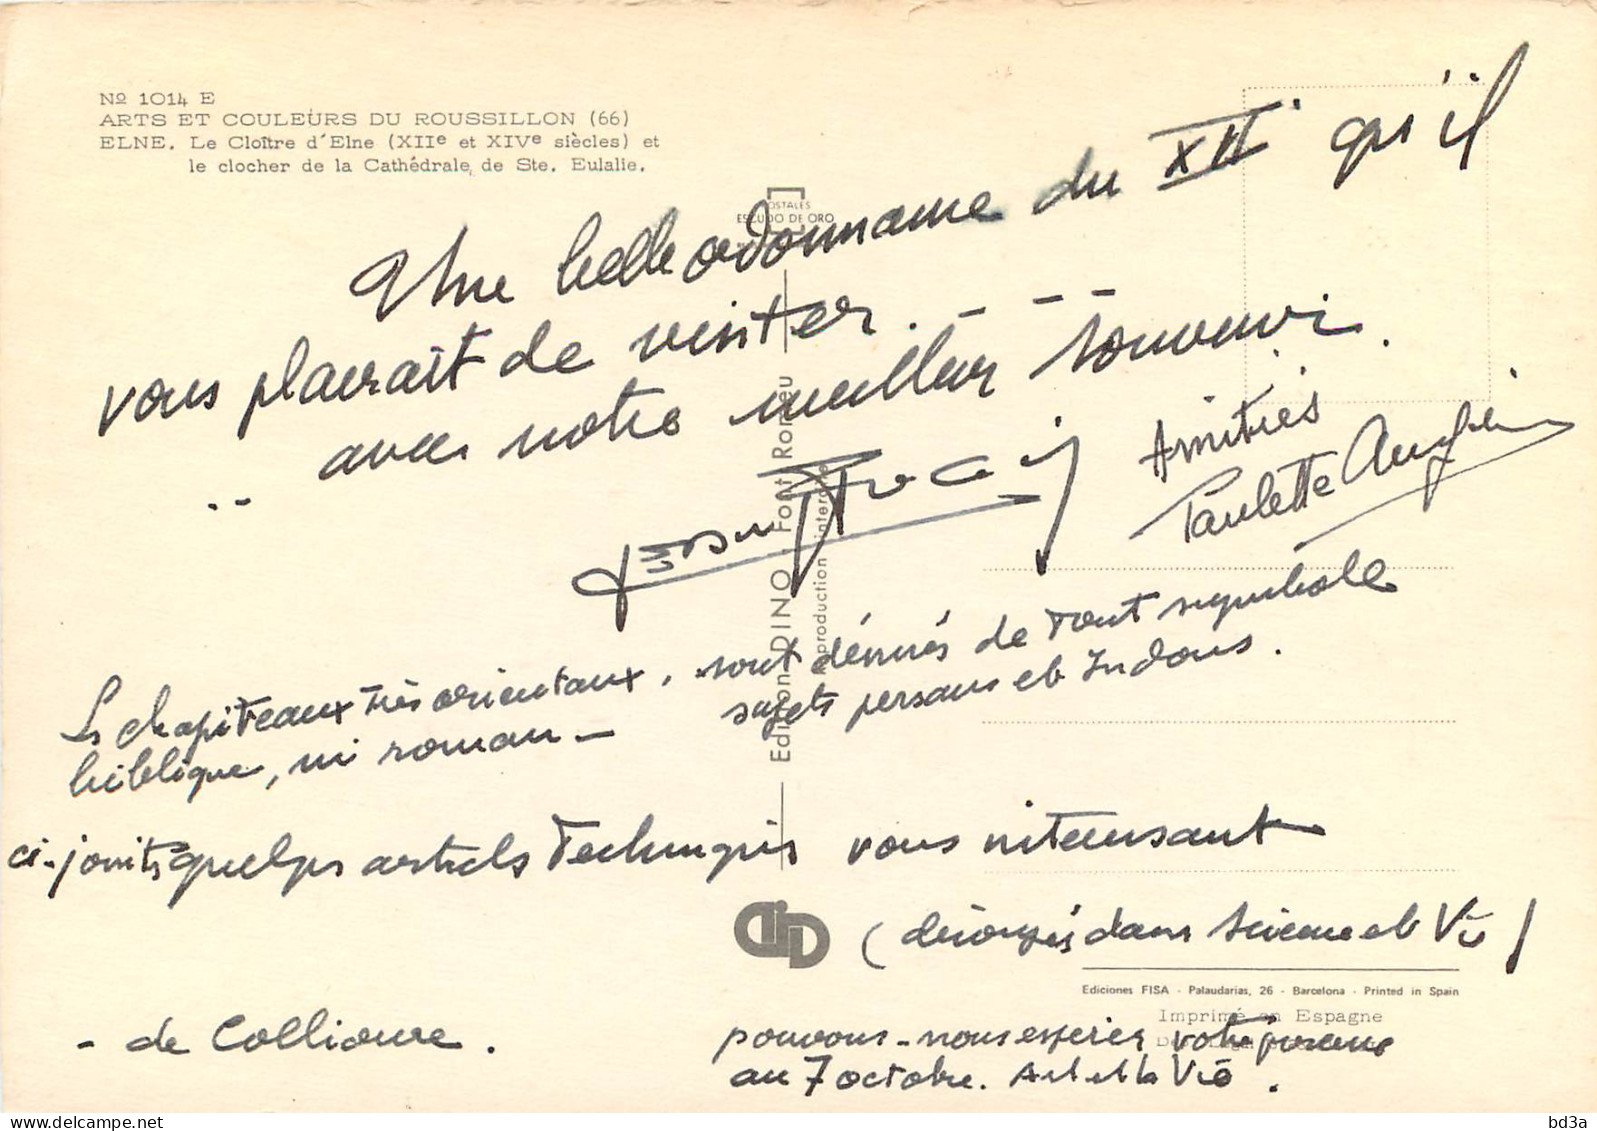 Nº 1014 E
ARTS ET COULEURS DU ROUSSILLON (66)
ELNE. Le Cloître d'Elne (XIIe et XIVe siècles) et
le clocher de la Cathédrale de Ste. Eulalie.
POSTALES
ESCUDO DE ORO
Une belle ordonnance du XII qu'il
vous plairait de visiter. - - -
.. avec notre meilleur souvenir.
Amitiés
Paulette
Edition DINO - Font Romeu
Reproduction interdite
Les chapiteaux très orientaux, sont dénués de tout symbole
biblique, ni roman - sujets persans et Indous.
ci-joints quelques articles Techniques vous intéressant
(découpés dans Science et Vie)
DID
Ediciones FISA - Palaudarias, 26 - Barcelona - Printed in Spain
Imprimé en Espagne
- de Collioure.
pouvons-nous espérer votre présence
au 7 octobre. Art et la Vie.
bd3a